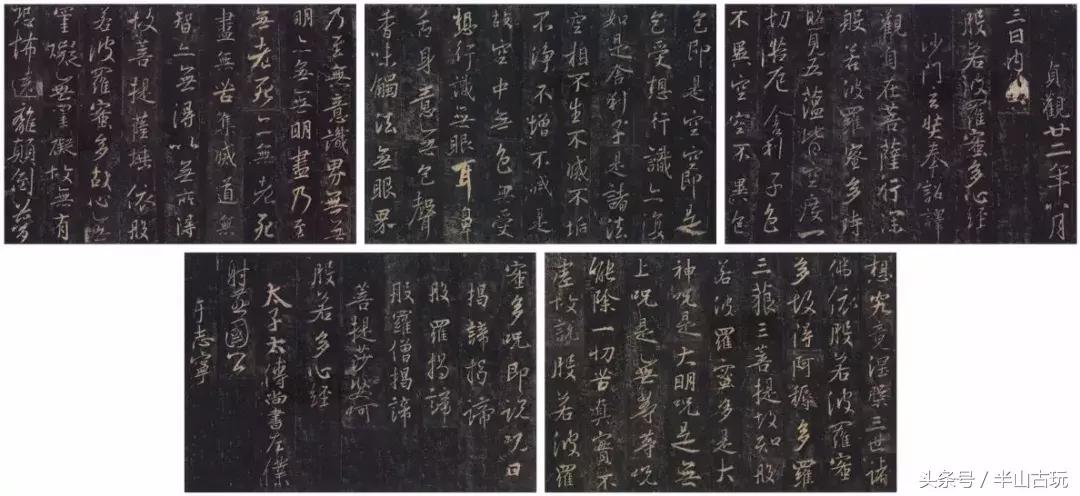 貞觀廿二年八月
三日內
般若波羅蜜多心經
沙門玄奘奉詔譯
觀自在菩薩行深
般若波羅蜜多時
照見五蘊皆空度一
切苦厄舍利子色
不異空空不異色
色即是空空即是
色受想行識亦復
如是舍利子是諸法
空相不生不滅不垢
不淨不增不減是
故空中無色無受
想行識無眼耳鼻
舌身意無色聲
香味觸法無眼界
乃至無意識界無無
明亦無無明盡乃至
無老死亦無老死
盡無苦集滅道無
智亦無得以無所得
故菩提薩埵依般
若波羅蜜多故心無
罣礙無罣礙故無有
恐怖遠離顛倒夢
想究竟涅槃三世諸
佛依般若波羅蜜
多故得阿耨多羅
三藐三菩提故知般
若波羅蜜多是大
神咒是大明咒是無
上咒是無等等咒
能除一切苦真實不
虛故說般若波羅
蜜多咒即說咒曰
揭諦揭諦
般羅揭諦
般羅僧揭諦
菩提莎婆呵
般若多心經
太子太傅尚書左僕
射燕國公
于志寧
头条号／半山古玩